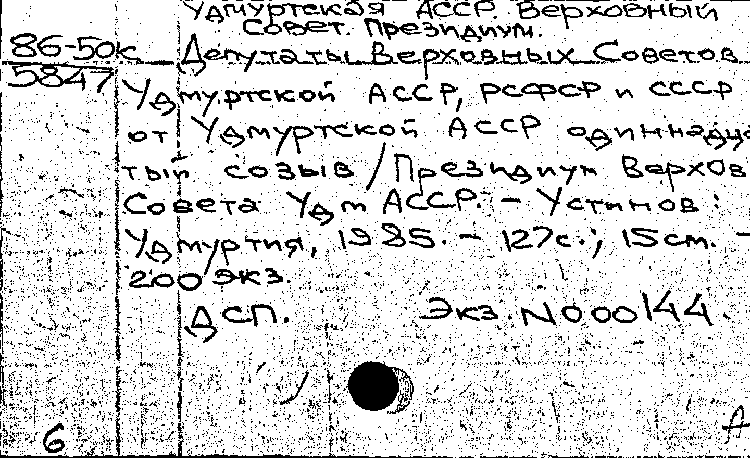 Удмуртская АССР. Верховный
Совет. Президиум.
86-50к Депутаты Верховных Советов
5847 Удмуртской АССР, РСФСР и СССР
от Удмуртской АССР одиннадца
тый созыв / Президиум Верхов
Совета Удм АССР. - Устинов:
Удмуртия, 1985. - 127с.; 15см. -
200 экз.
ДСП. Экз. N000144.
6
А